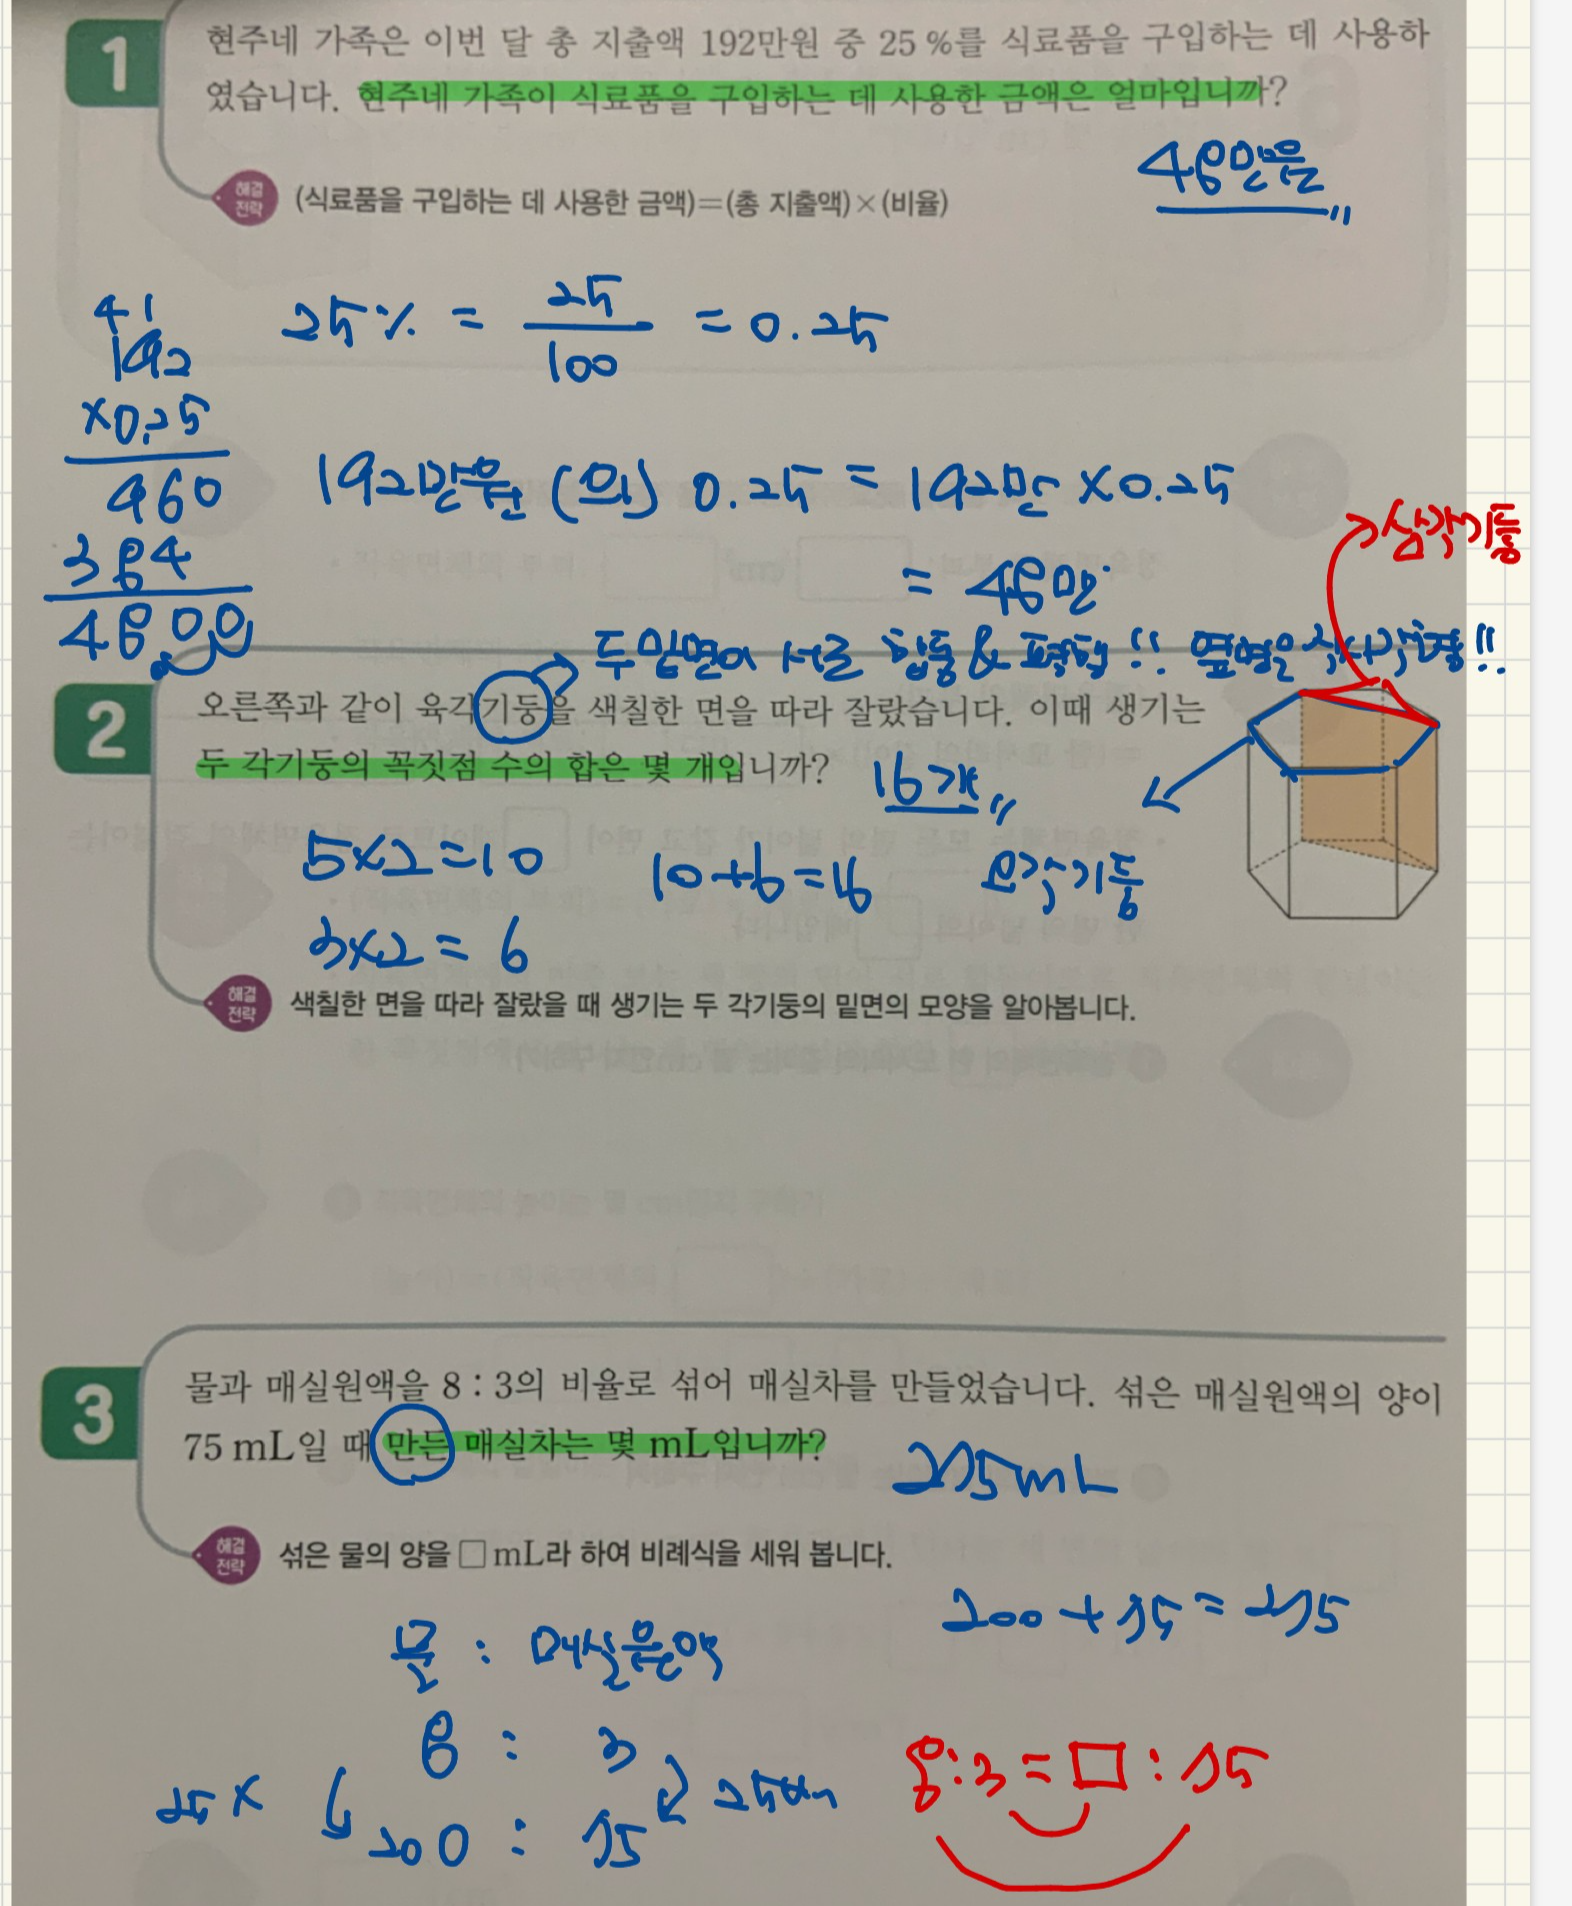 1
현주네 가족은 이번 달 총 지출액 192만원 중 25 %를 식료품을 구입하는 데 사용하
였습니다. 현주네 가족이 식료품을 구입하는 데 사용한 금액은 얼마입니까?
48만원
해결
전략
(식료품을 구입하는 데 사용한 금액)=(총 지출액)×(비율)
4 1
192
×0.25
960
384
4800
25% = 25/100 = 0.25
192만원 (의) 0.25 = 192만 ×0.25
= 48만
삼각기둥
두 밑면이 서로 합동 & 평행!! 옆면은 직사각형!!
2
오른쪽과 같이 육각기둥을 색칠한 면을 따라 잘랐습니다. 이때 생기는
두 각기둥의 꼭짓점 수의 합은 몇 개입니까?
16개
5×2=10
3×2=6
10+6=16
오각기둥
해결
전략
색칠한 면을 따라 잘랐을 때 생기는 두 각기둥의 밑면의 모양을 알아봅니다.
3
물과 매실원액을 8 : 3의 비율로 섞어 매실차를 만들었습니다. 섞은 매실원액의 양이
75 mL일 때 만든 매실차는 몇 mL입니까?
275mL
해결
전략
섞은 물의 양을 □ mL라 하여 비례식을 세워 봅니다.
200+75=275
물 : 매실원액
8 : 3
25×
25배
200 : 75
8:3=□:75